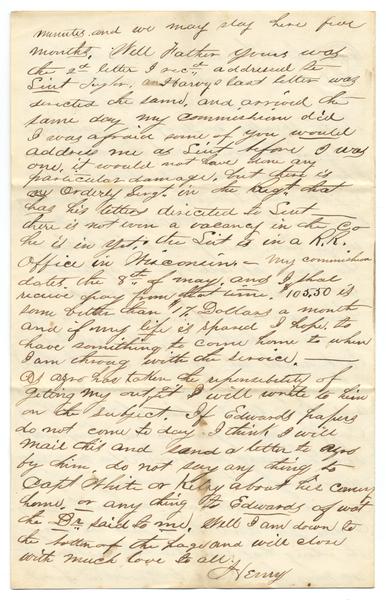 minutes. and we may stay here five
months. Well Father yours was
the 2d letter I rect. addressed to
Lieut Harvys last letter was
directed the same. and arrived the
same day my commishion did
I was afraid some of you would
address me as Lieut before I was
one. it would not have done any
particular damage. but there is
an Orderly Sergt. in the Regt that
has his letters directed to Lieut —
there is not even a vacancy in the Co
he is in yet. the Lieut is in a R.R.
Office in Wisconsin. — My commishion
dates. the 8th of May. and I shal
receive pay from that time. $105,50 is
some better than 17 Dollars a month
and if my life is spared I hope. to
have something to come home to when
I am throug with the service. —
As Azro has taken the responsibility of
geting my outfit I will write to him
on the subject. If Edwards papers
do not come to day I think I will
mail this and send a letter to Azro
by him. do not say any thing to
Capt White or about his coming
home. or any thing to Edwards of wat
the Dr. said to me. Well I am down to
the bottom of the page and will close
with much love to all.
Henry